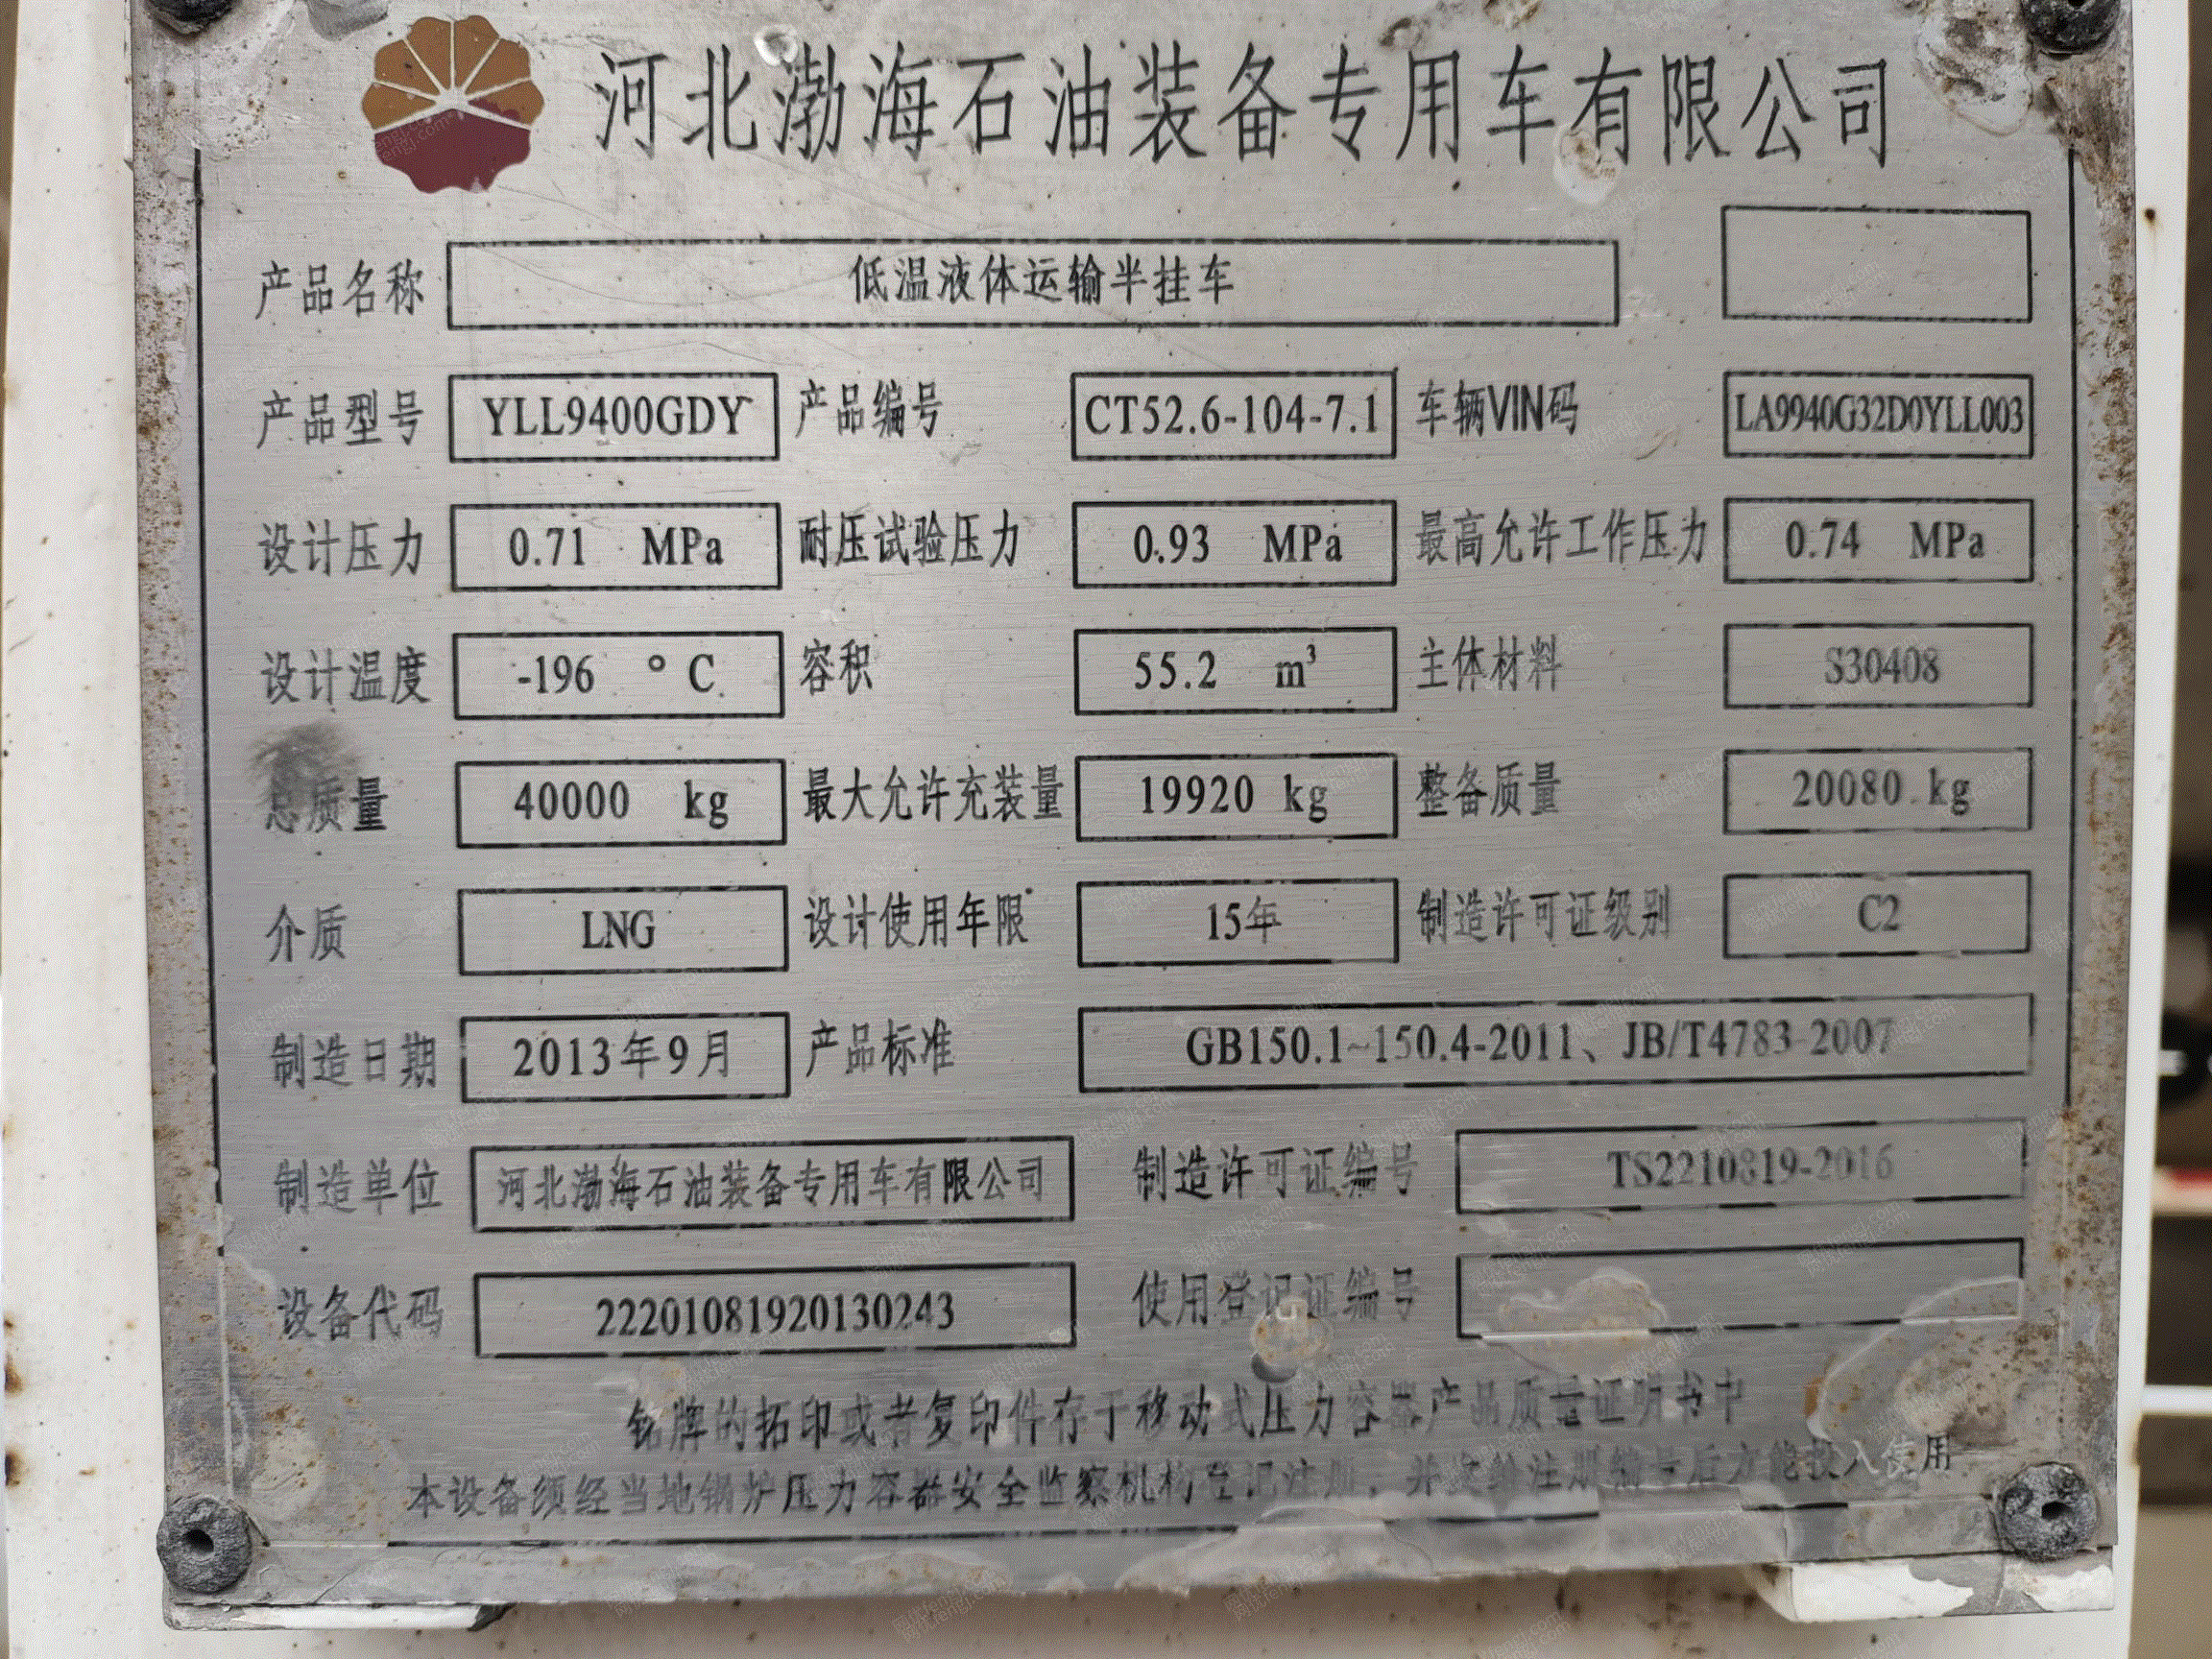 河北渤海石油装备专用车有限公司
产品名称 低温液体运输半挂车
产品型号 YLL9400GDY 产品编号 CT52.6-104-7.1 车辆VIN码 LA9940G32D0YLL003
设计压力 0.71 MPa 耐压试验压力 0.93 MPa 最高允许工作压力 0.74 MPa
设计温度 -196 °C 容积 55.2 m³ 主体材料 S30408
总质量 40000 kg 最大允许充装量 19920 kg 整备质量 20080 kg
介质 LNG 设计使用年限 15年 制造许可证级别 C2
制造日期 2013年9月 产品标准 GB150.1~150.4-2011、JB/T4783-2007
制造单位 河北渤海石油装备专用车有限公司 制造许可证编号 TS2210819-2016
设备代码 22201081920130243 使用登记证编号
铭牌的拓印或者复印件存于移动式压力容器产品质量证明书中
本设备须经当地锅炉压力容器安全监察机构登记注册，并发给注册编号后方能投入使用